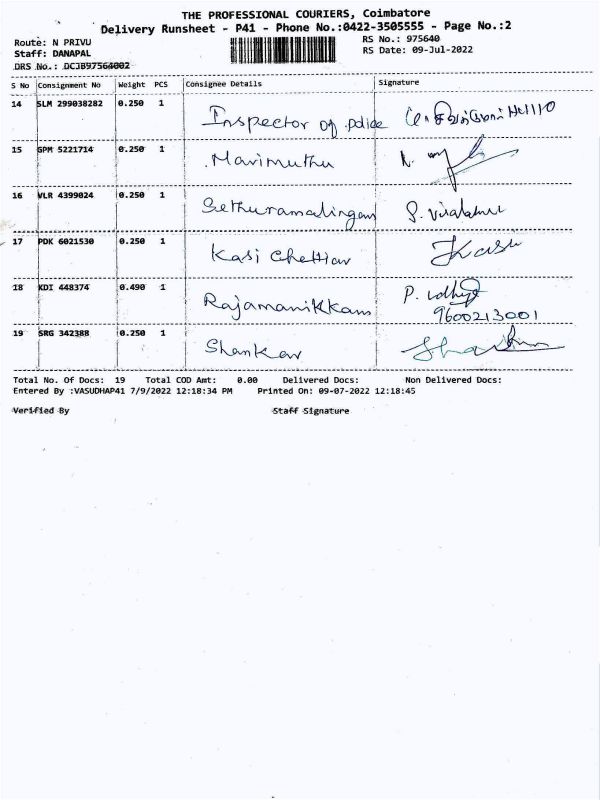 THE PROFESSIONAL COURIERS, Coimbatore
Delivery Runsheet - P41 - Phone No.:0422-3505555 - Page No.:2
Route: N PRIVU
RS No.: 975640
Staff: DANAPAL
RS Date: 09-Jul-2022
DRS No.: DCJB97564002
S No Consignment No Weight PCS Consignee Details Signature
14 SLM 299038282 0.250 1 Inspector of police
15 GPM 5221714 0.250 1 Marimuthu
16 VLR 4399024 0.250 1 Sethuramalingam
17 PDK 6021530 0.250 1 Kasi Chettiar Kasi
18 KDI 448374 0.490 1 Rajamanikkam P.
9600213001
19 SRG 342388 0.250 1 Shankar
Total No. Of Docs: 19 Total COD Amt: 0.00 Delivered Docs: Non Delivered Docs:
Entered By :VASUDHAP41 7/9/2022 12:18:34 PM Printed On: 09-07-2022 12:18:45
Verified By Staff Signature